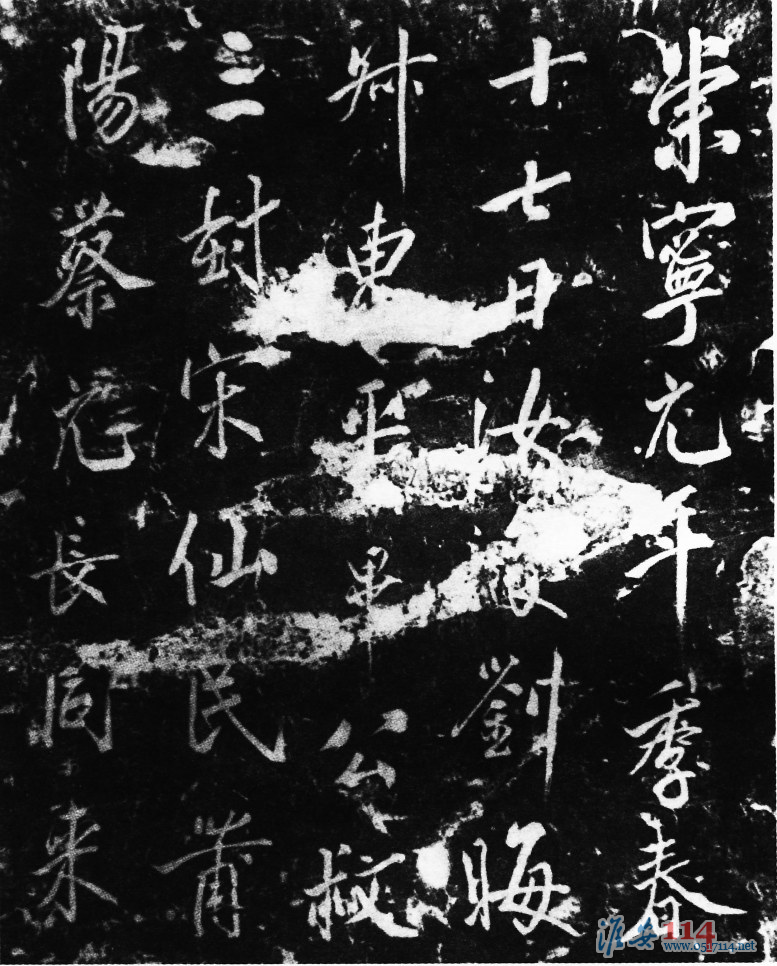 崇寧元年季春
十七日汝劉晦
叔東平畢公叔
三封宋仙民莆
陽蔡元長同来
淮安114
www.0517114.net